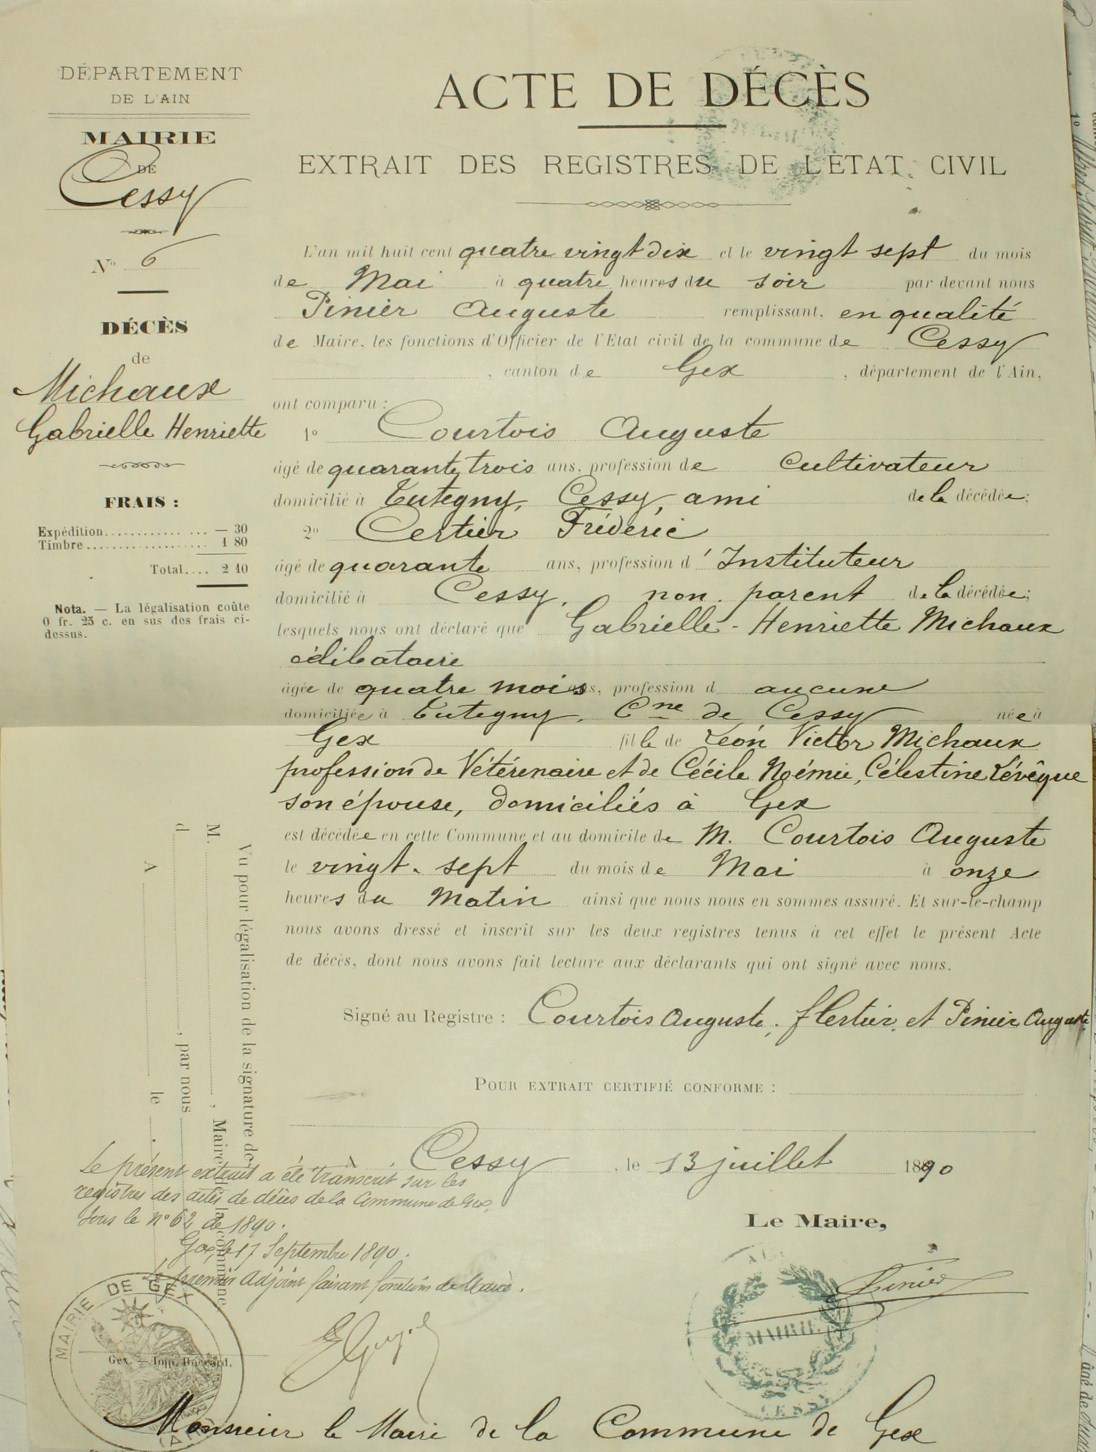 DÉPARTEMENT
DE L'AIN
MAIRIE
DE
Cessy
N° 6
DÉCÈS
de
Michaux
Gabrielle Henriette
FRAIS :
Expédition........... ... — 30
Timbre................. 1 80
Total.... 2 10
Nota. — La légalisation coûte
0 fr. 25 c. en sus des frais ci-
dessus.
ACTE DE DÉCÈS
EXTRAIT DES REGISTRES DE L'ÉTAT CIVIL
L'an mil huit cent quatre vingt dix et le vingt sept du mois
de Mai à quatre heures du soir par devant nous
Pinier Auguste remplissant, en qualité
de Maire, les fonctions d'Officier de l'Etat civil de la commune de Cessy
, canton de Gex , département de l'Ain,
ont comparu :
1° Courtois Auguste
âgé de quarante trois ans, profession de Cultivateur
domicilié à Tutegny, Cessy, ami de la décédée;
2° Certier Fréderic
âgé de quarante ans, profession d'Instituteur
domicilié à Cessy, non parent de la décédée;
lesquels nous ont déclaré que Gabrielle-Henriette Michaux
célibataire
âgée de quatre mois, profession d aucune
domiciliée à Tutegny, Cne de Cessy née à
Gex fille de Léon Victor Michaux
profession de Vétérenaire et de Cécile Noémie, Célestine Lévêque
son épouse, domiciliés à Gex
est décédée en cette Commune et au domicile de M. Courtois Auguste
le vingt-sept du mois de Mai à onze
heures du Matin ainsi que nous nous en sommes assuré. Et sur-le-champ
nous avons dressé et inscrit sur les deux registres tenus à cet effet le présent Acte
de décès, dont nous avons fait lecture aux déclarants qui ont signé avec nous.
Signé au Registre : Courtois Auguste, f Certier, et Pinier Auguste
POUR EXTRAIT CERTIFIÉ CONFORME :
A Cessy , le 13 juillet 1890
Le Maire,
Pinier
MAIRIE
CESSY
Vu pour légalisation de la signature de
M. , Maire de la commune
d , par nous
A le
Le présent extrait a été transcrit sur les
registres des actes de décès de la Commune de Gex,
sous le n° 62 de 1890.
Gex, le 17 Septembre 1890.
Le premier Adjoint faisant fonctions de Maire.
MAIRIE DE GEX
Gex. — Imp. Duccard.
Monsieur le Maire de la Commune de Gex